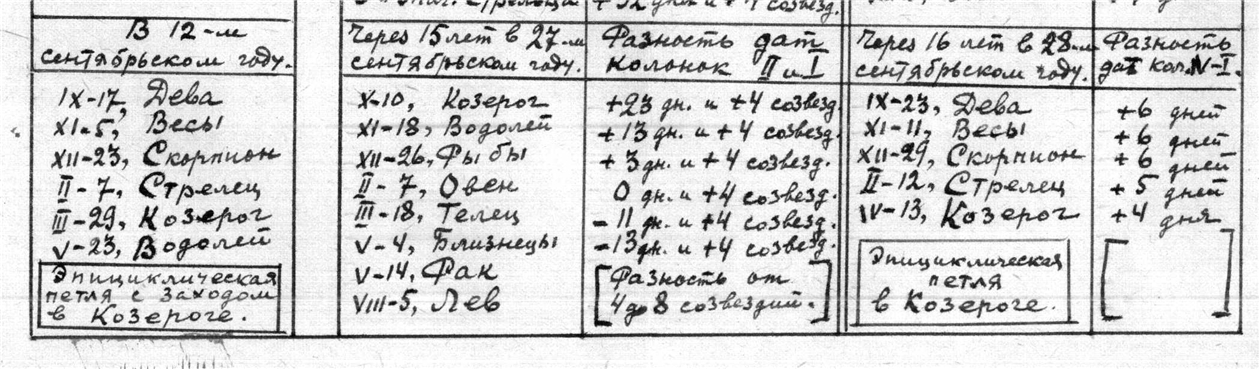 +32 дня и +4 созвезд.
В 12-м
сентябрьском году.
Через 15 лет в 27-м
сентябрьском году.
Разность дат
колонок II и I
Через 16 лет в 28-м
сентябрьском году.
Разность
дат кол. IV-I.
IX-17, Дева
XI-5, Весы
XII-23, Скорпион
II-7, Стрелец
III-29, Козерог
V-23, Водолей
Эпициклическая
петля с заходом
в Козероге.
X-10, Козерог
XI-18, Водолей
XII-26, Рыбы
II-7, Овен
III-18, Телец
V-4, Близнецы
V-14, Рак
VIII-5, Лев
+23 дн. и +4 созвезд.
+13 дн. и +4 созвезд.
+3 дн. и +4 созвезд.
0 дн. и +4 созвезд.
-11 дн. и +4 созвезд.
-13 дн. и +4 созвезд.
[Разность от
4 до 8 созвездий.]
IX-23, Дева
XI-11, Весы
XII-29, Скорпион
II-12, Стрелец
IV-13, Козерог
Эпициклическая
петля
в Козероге.
+6 дней
+6 дней
+6 дней
+5 дней
+4 дня